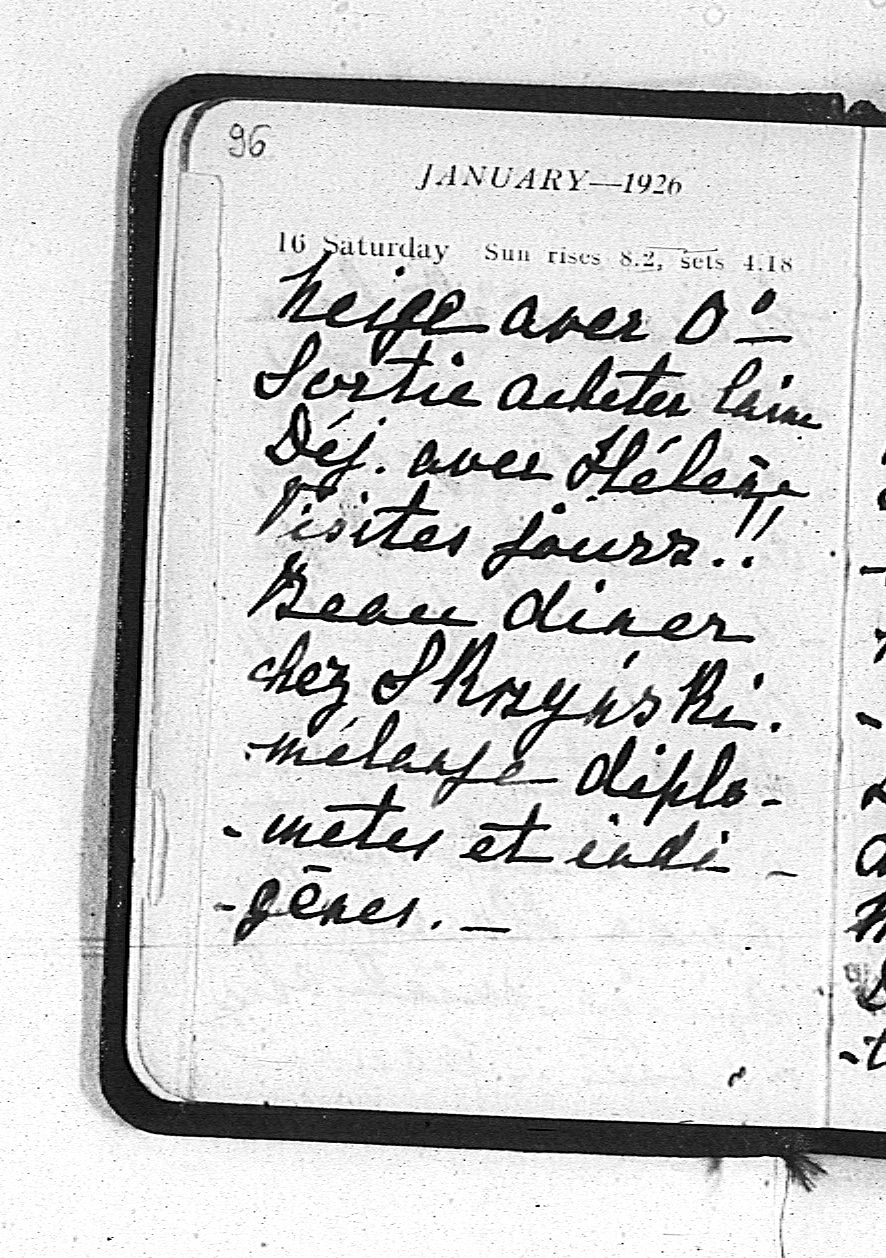 96
JANUARY—1926
16 Saturday Sun rises 8.2, sets 4.18
Neige avec 0°—
Sortie acheter laine
Déj. avec Hélène
Visites jours.!!
Beau diner
chez Skrzyński.
-mélange diplo-
-mates et indi-
-gènes.—